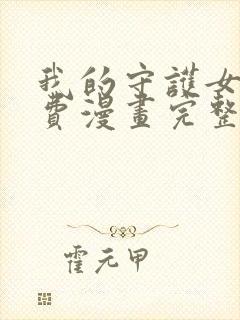 我的守護女
費漫畫完整
霍元甲